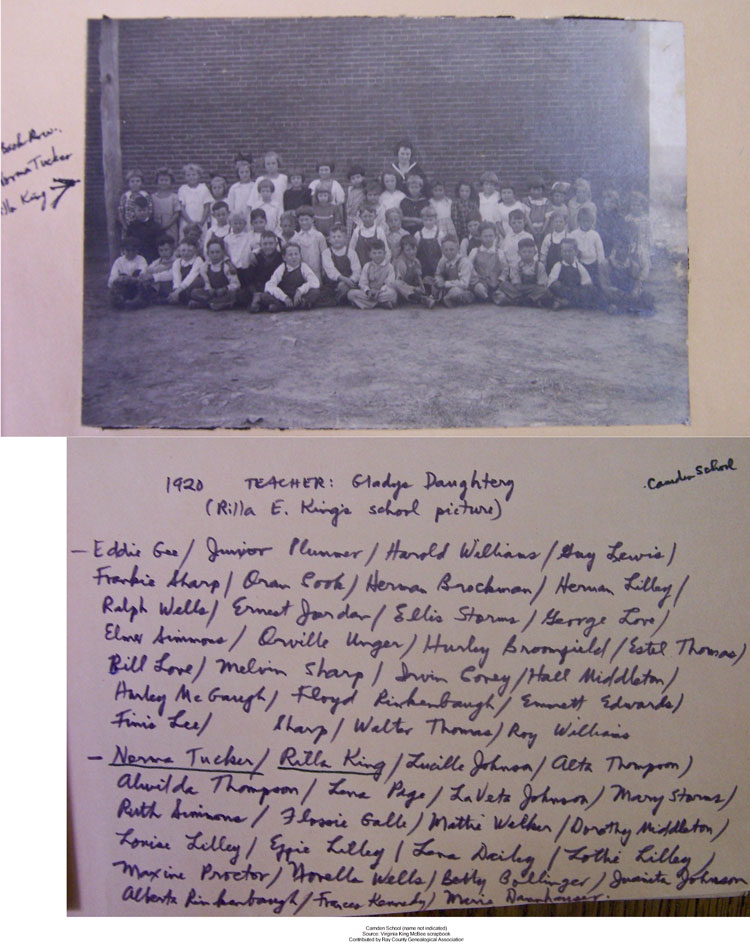 Back Row.
Norma Tucker
Rilla King
Camden School
1920 TEACHER: Gladys Daughterg
(Rilla E. King's school picture)
- Eddie Gee / Junior Plummer / Harold Williams / Guy Lewis /
Frankie Sharp / Oran Cook / Herman Brockman / Herman Lilley /
Ralph Wells / Ernest Jordan / Ellis Storms / George Love /
Elmer Simmons / Orville Unger / Hurley Broomfield / Estel Thomas /
Bill Love / Melvin Sharp / Irvin Corey / Hall Middleton /
Harley McGaugh / Floyd Rinkenbaugh / Emmett Edwards /
Finis Lee / Sharp / Walter Thomas / Roy Williams
- Norma Tucker / Rilla King / Lucille Johnson / Alta Thompson /
Alwilda Thompson / Lena Page / LaVeta Johnson / Mary Storms /
Ruth Simmons / Flossie Galle / Mattie Walker / Dorothy Middleton /
Louise Lilley / Effie Lilley / Lena Dailey / Lottie Lilley /
Maxine Proctor / Norella Wells / Betty Bollinger / Juanita Johnson
Alberta Rinkenbaugh / Frances Kennedy / Marie
Camden School (name not indicated)
Source: Virginia King McBee scrapbook
Contributed by Ray County Genealogical Association